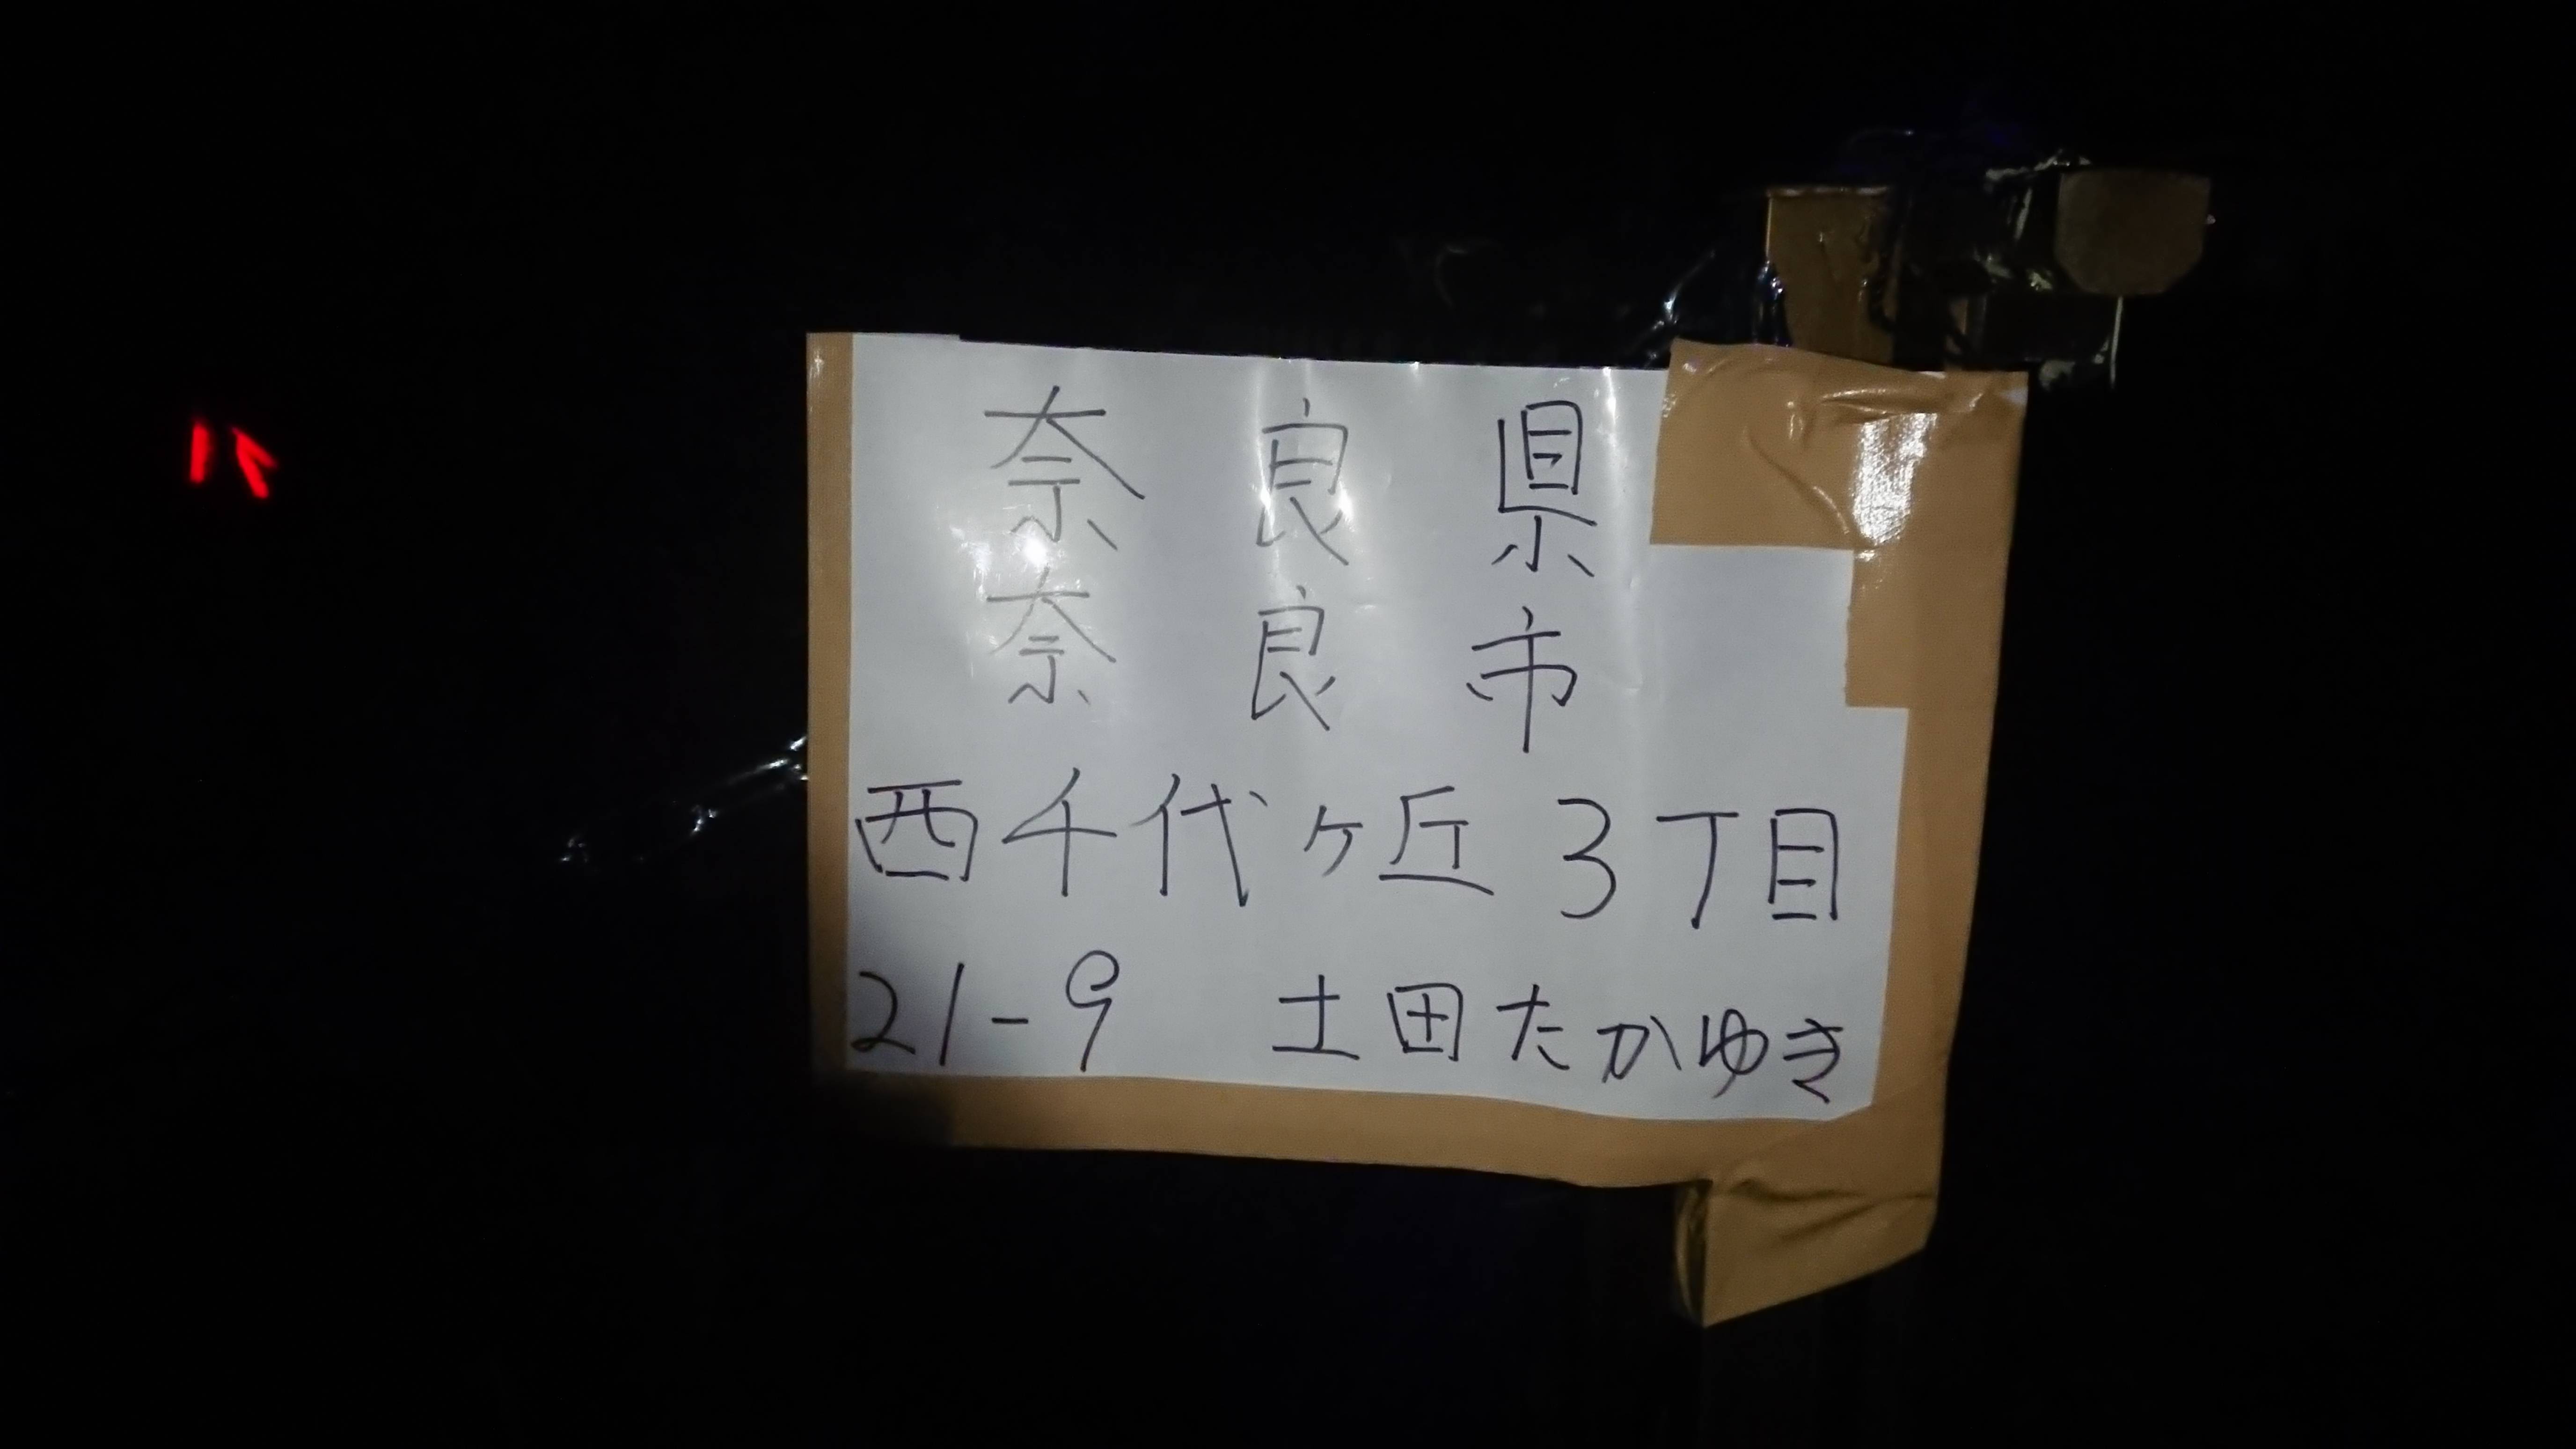 奈良県
奈良市
西千代ヶ丘3丁目
21-9 土田たかゆき